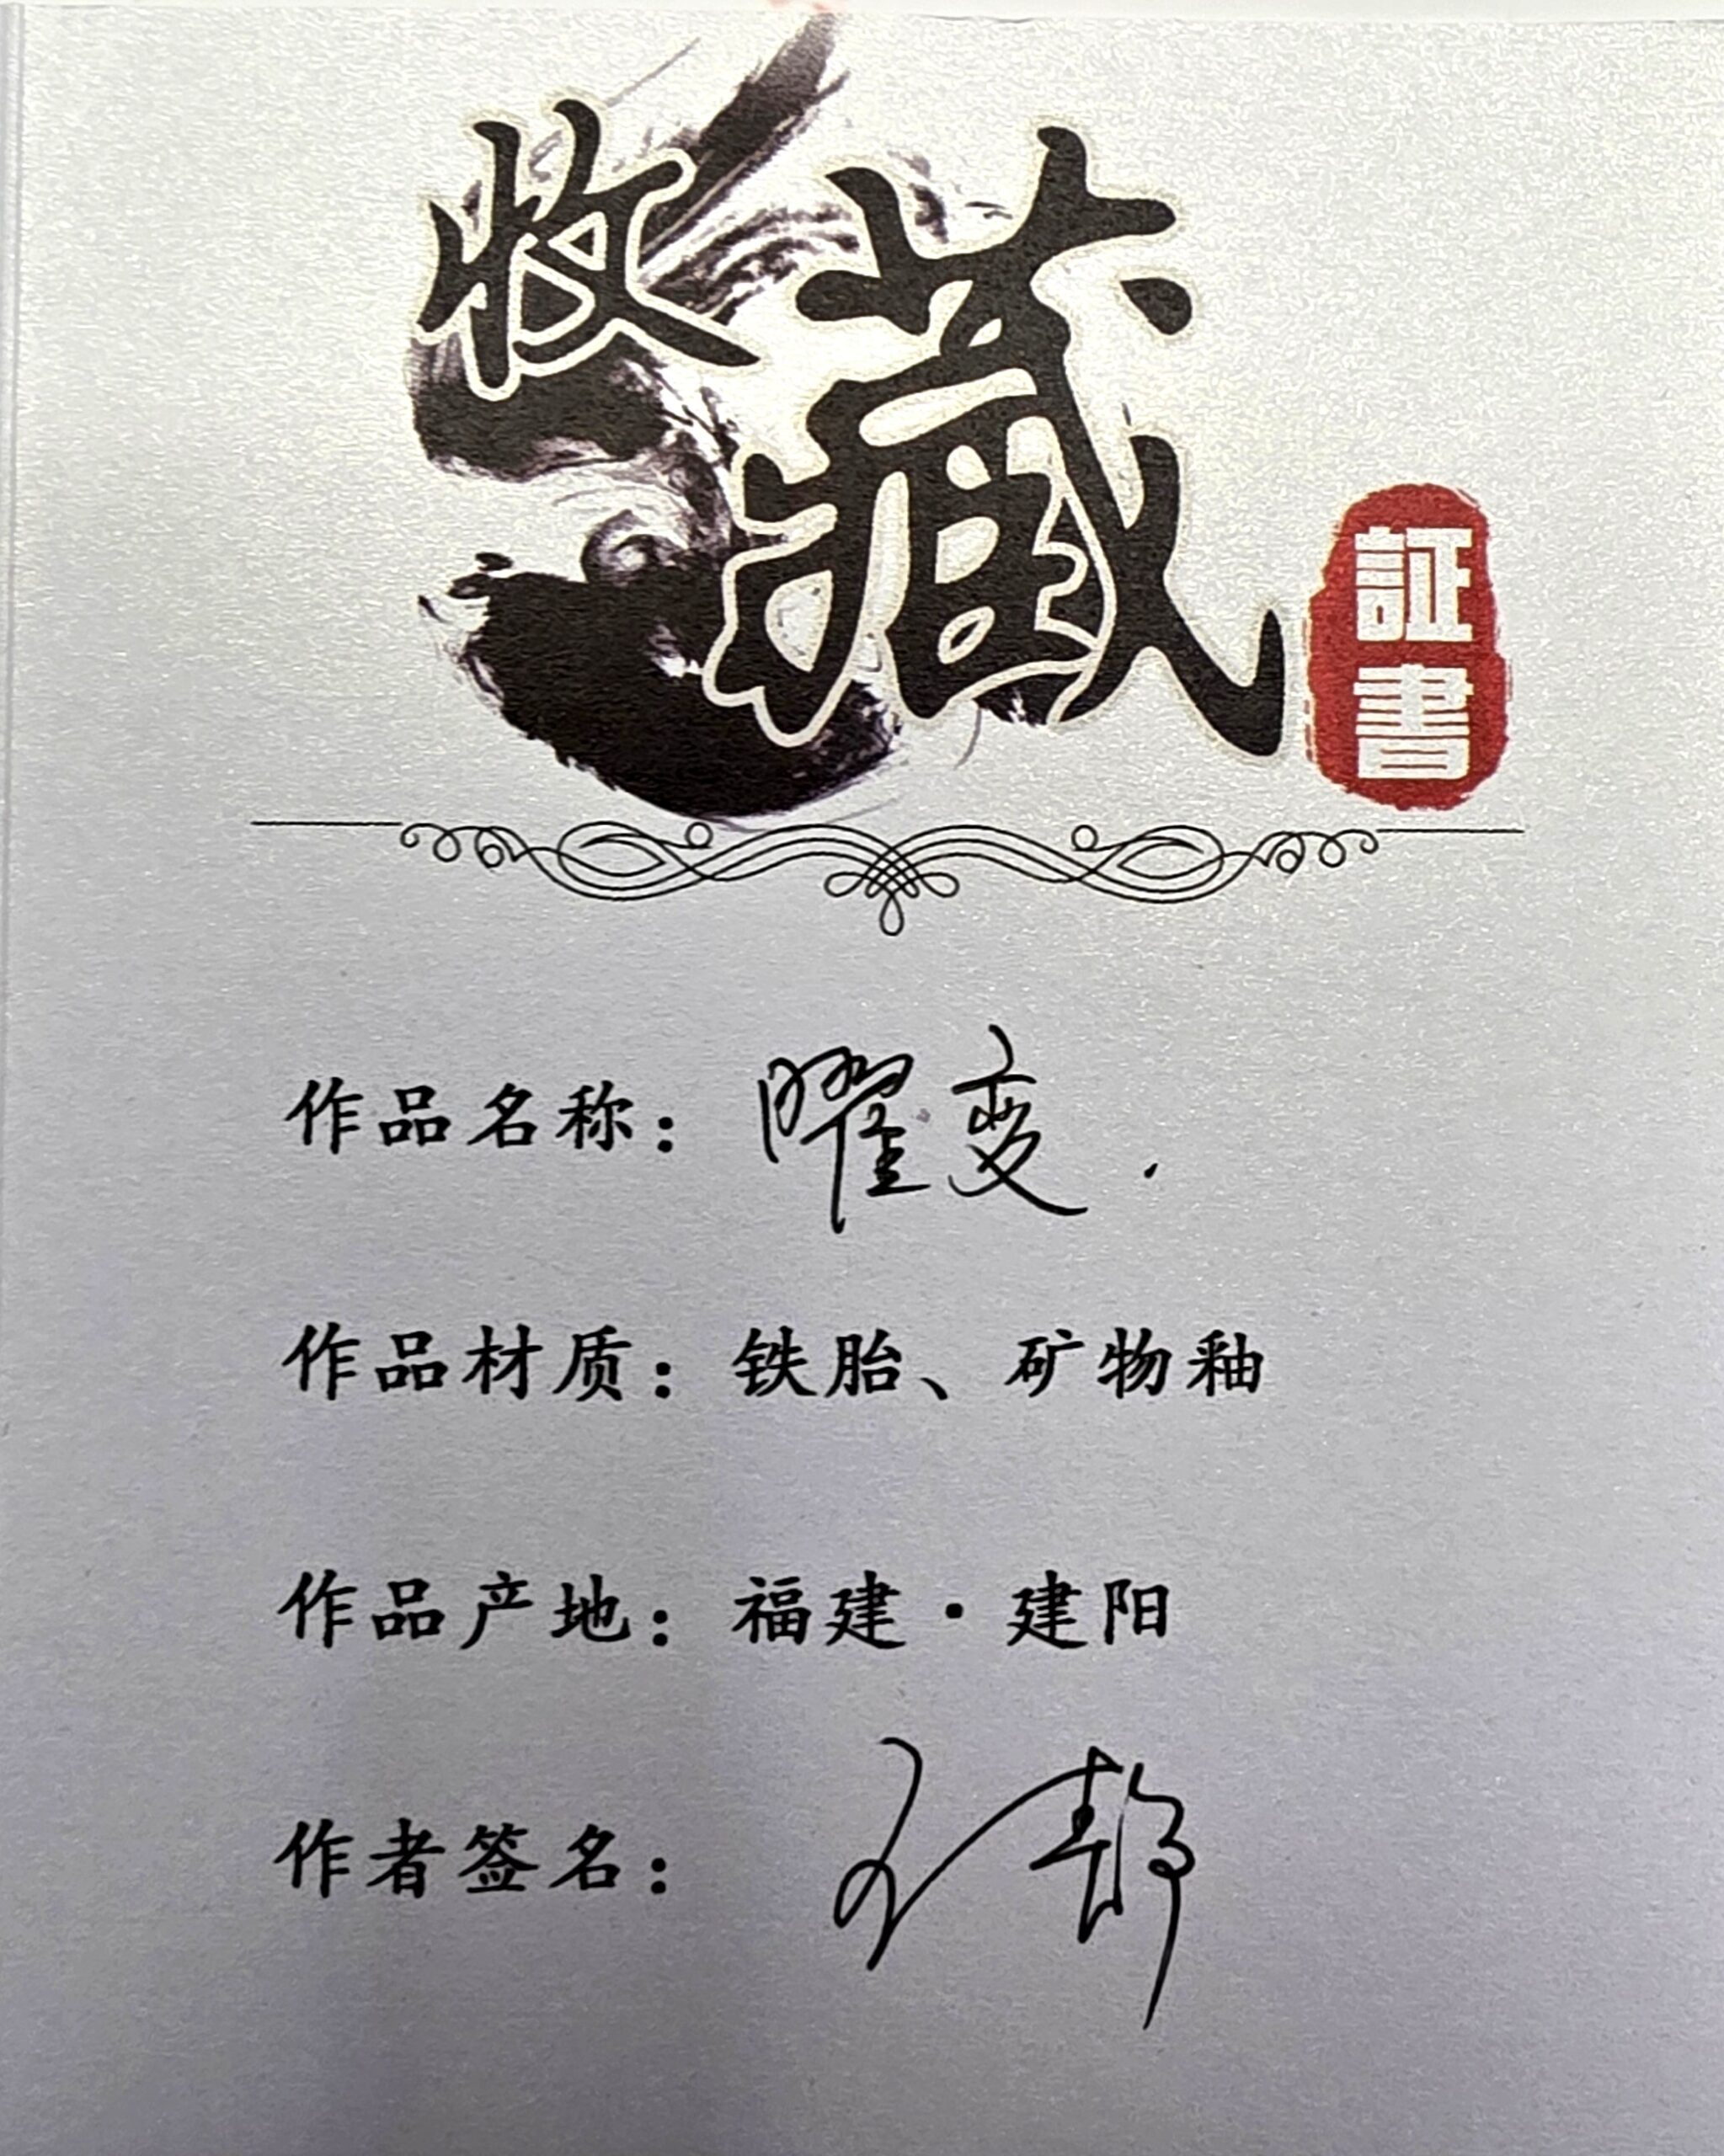 收藏
証書
作品名称：曜变.
作品材质：铁胎、矿物釉
作品产地：福建·建阳
作者签名：